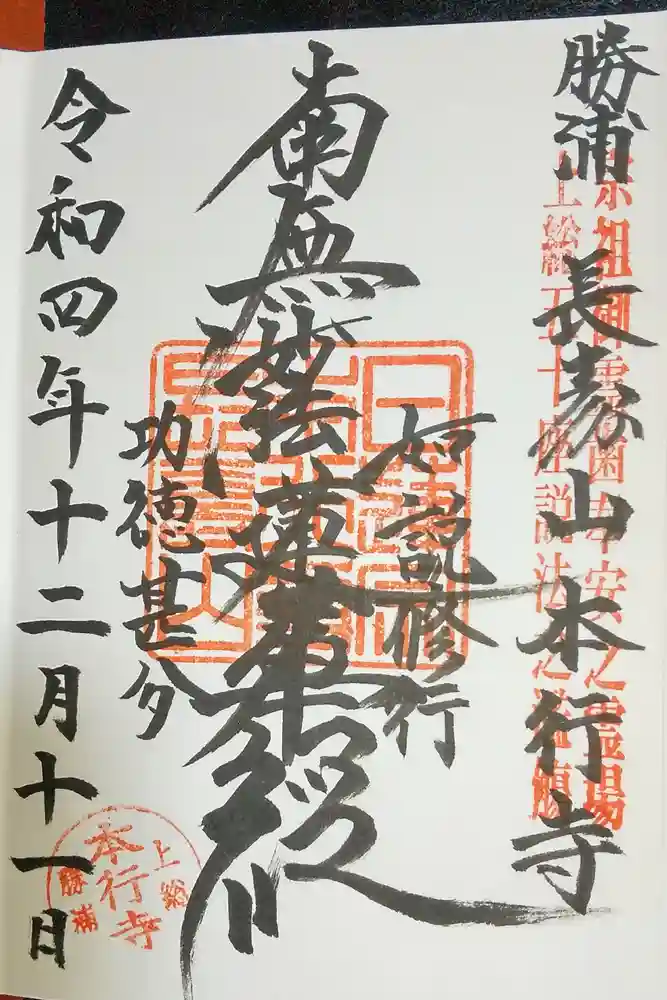 勝浦 長寿山本行寺
宗祖御霊歯奉安之霊場
上総五十座説法
如説修行
南無妙法蓮華経
功徳甚多
令和四年十二月十一日
上総
本行寺
勝浦